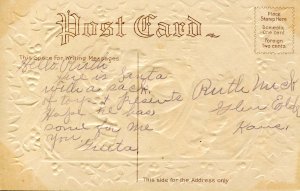 Post Card
Place
Stamp Here
Domestic
One cent
Foreign
Two cents.
This Space for Writing Messages
Hello Ruth
Here is Santa
with a sack
of toys & Presents
Hope he has
some for me
you
Greeta
Ruth
Glen Elder
Kans
This side for the Address only